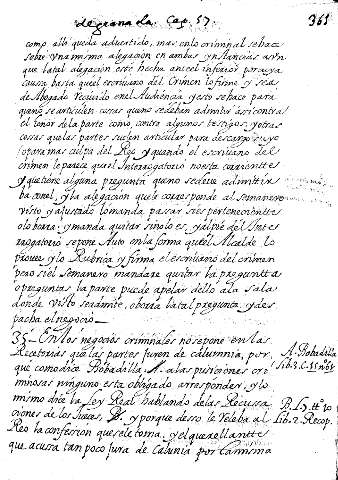 de granada. Cap. 57. 361
como alto queda aduertido, mas en lo criminal se hace
sobre una misma alegacion en ambas ynstancias aun
que la tal alegacion este hecha en el inferior porque ya
causa basta que el escriuano del Crimen lo firme y sea
de Abogado Reciuido en el Audiencia, y esto se hace para
que no se articulen cosas que no se deban admitir assi contra
el tenor de la parte como contra algunos testigos, y otras
cosas que las partes suelen articular para descargo suyo
o para mas culpa del Reo y quando el escriuano del
crimen le parece que el Interrogatorio no esta corriente
y que tiene alguna pregunta que no se deue admitir
y la alegacion que le corresponde al semanero
visto y ajustado lo manda passar si es perteneciente
o lo borra, y manda quitar si no lo es, y al pie del Inte
rrogatorio se pone Auto en la forma que el Alcalde lo
prouee y lo Rubrica y firma el escriuano del crimen
pero si el Semanero mandare quitar la pregunta
o preguntas la parte puede apelar dello a la sala
donde visto se admite, o borra la tal pregunta, y des
pacha el negocio
35. En los negocios criminales no se pone en las
Rectorias que las partes juren de calumnia, por
que como dice Bobadilla A. a las pusiciones cri
minosas ninguno esta obligado a responder, y lo
mismo dice la Ley Real hablando de las Recussa
ciones de los Jueces, B. y porque desso se Releba al
Reo la confession que se le toma, y el querellante
que acusa tan poco jura de Calunia por la misma
A. Bobadilla
lib. 3. C. 15. nº 67
B. L. 7. tt. 10
lib. 2. Recop.